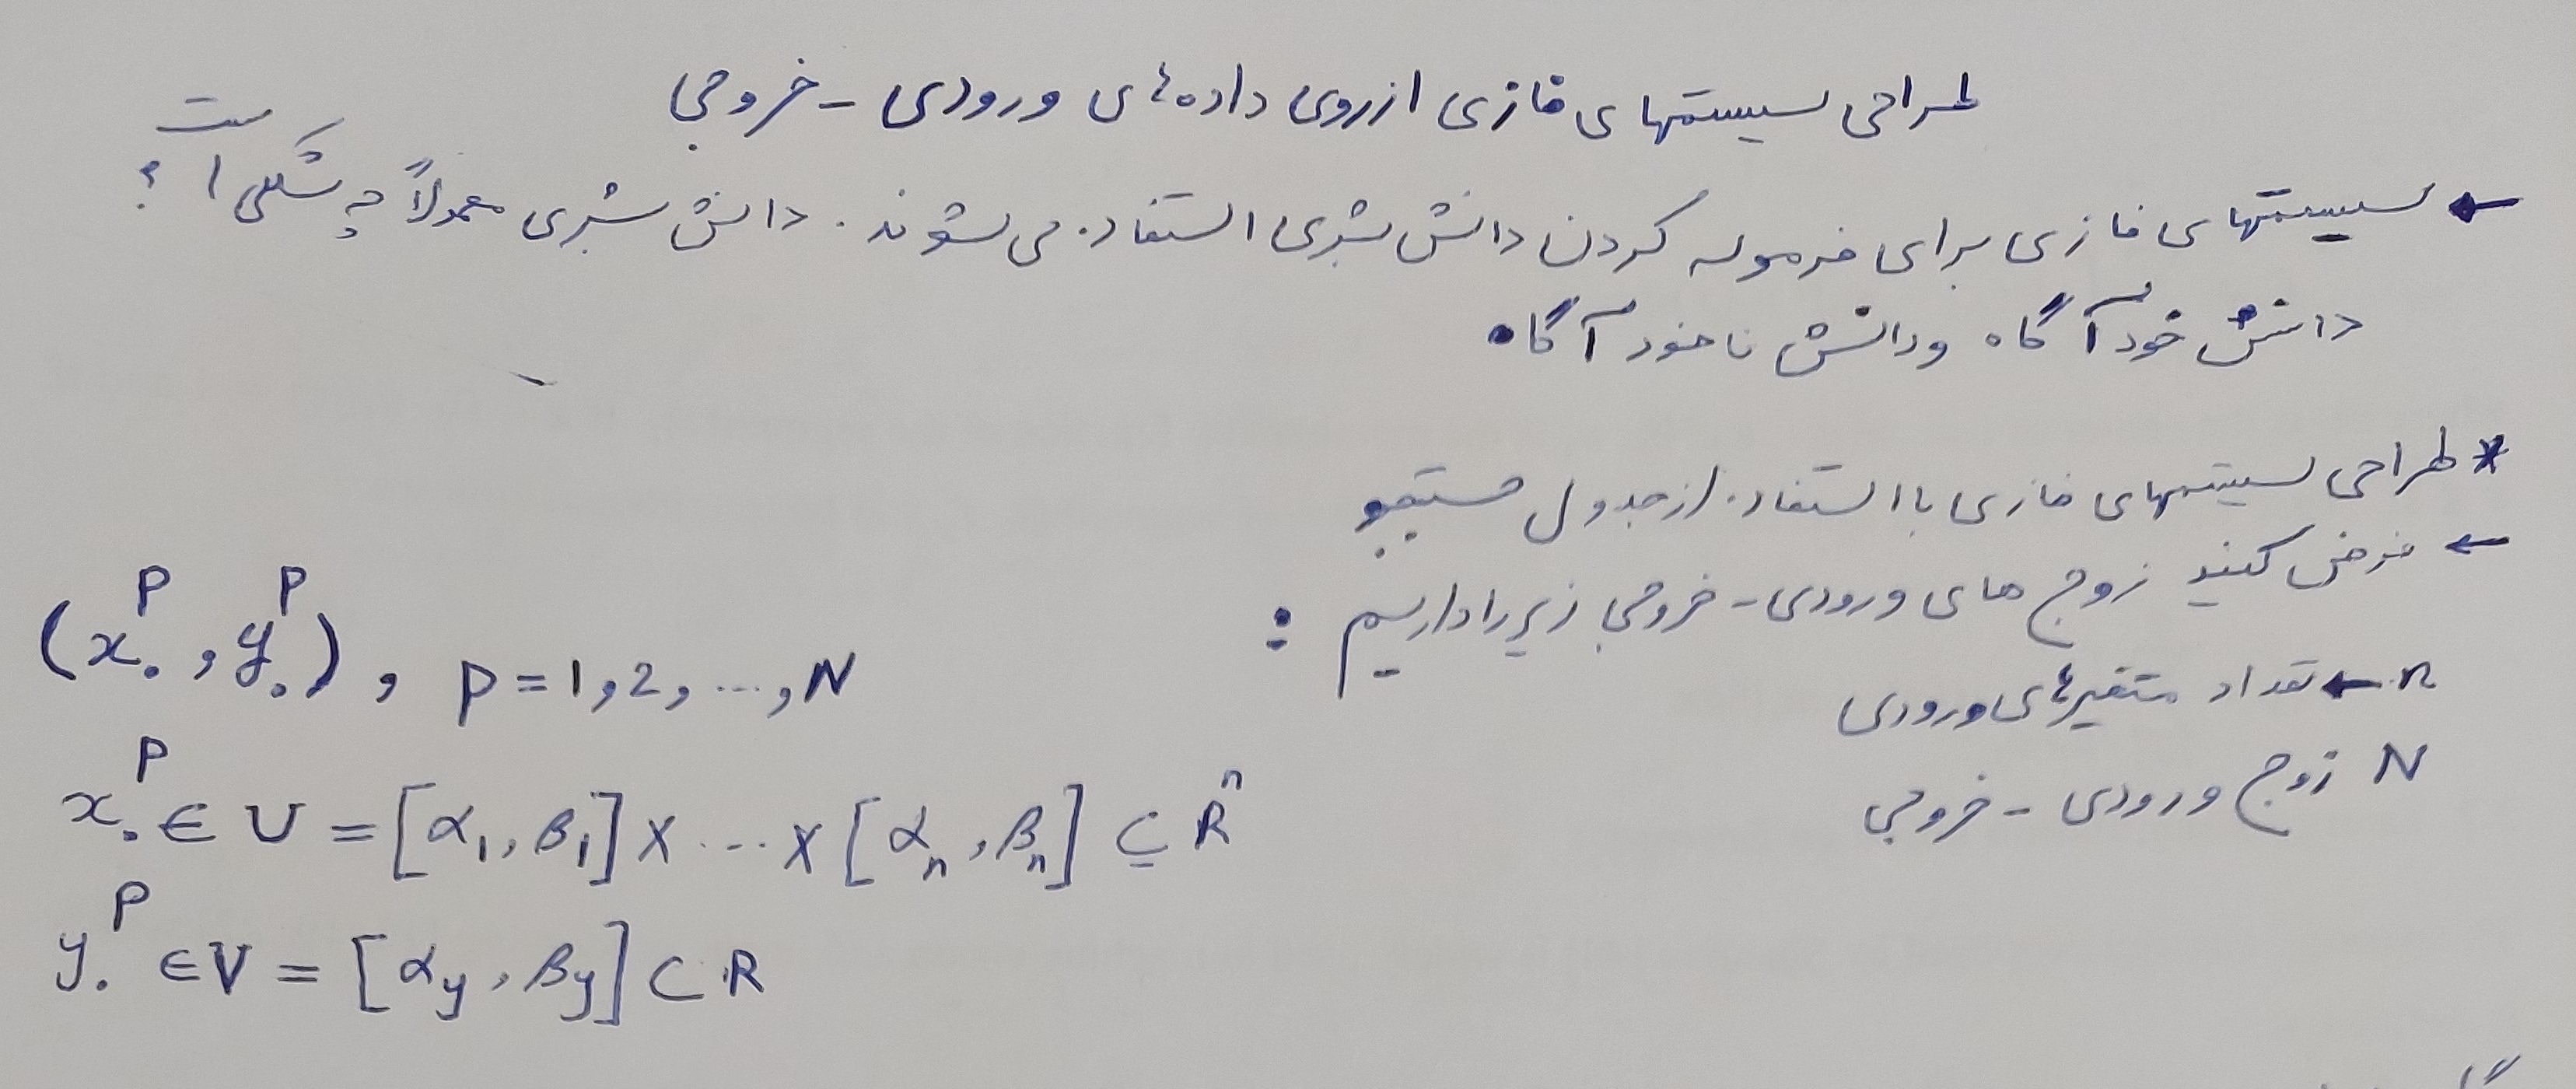 طراحی سیستمهای فازی از روی داده‌های ورودی - خروجی
← سیستمهای فازی برای فرموله کردن دانش بشری استفاده می‌شوند. دانش بشری معمولاً چه شکلی است؟
دانش خودآگاه و دانش ناخودآگاه
* طراحی سیستمهای فازی با استفاده از جدول جستجو
← فرض کنید زوج های ورودی - خروجی زیر را داریم :
(x₀ᵖ , y₀ᵖ) , p = 1, 2, ..., N
n ← تعداد متغیرهای ورودی
N زوج ورودی - خروجی
x₀ᵖ ∈ U = [α₁, β₁] × ... × [αₙ, βₙ] ⊆ Rⁿ
y₀ᵖ ∈ V = [αy, βy] ⊂ R